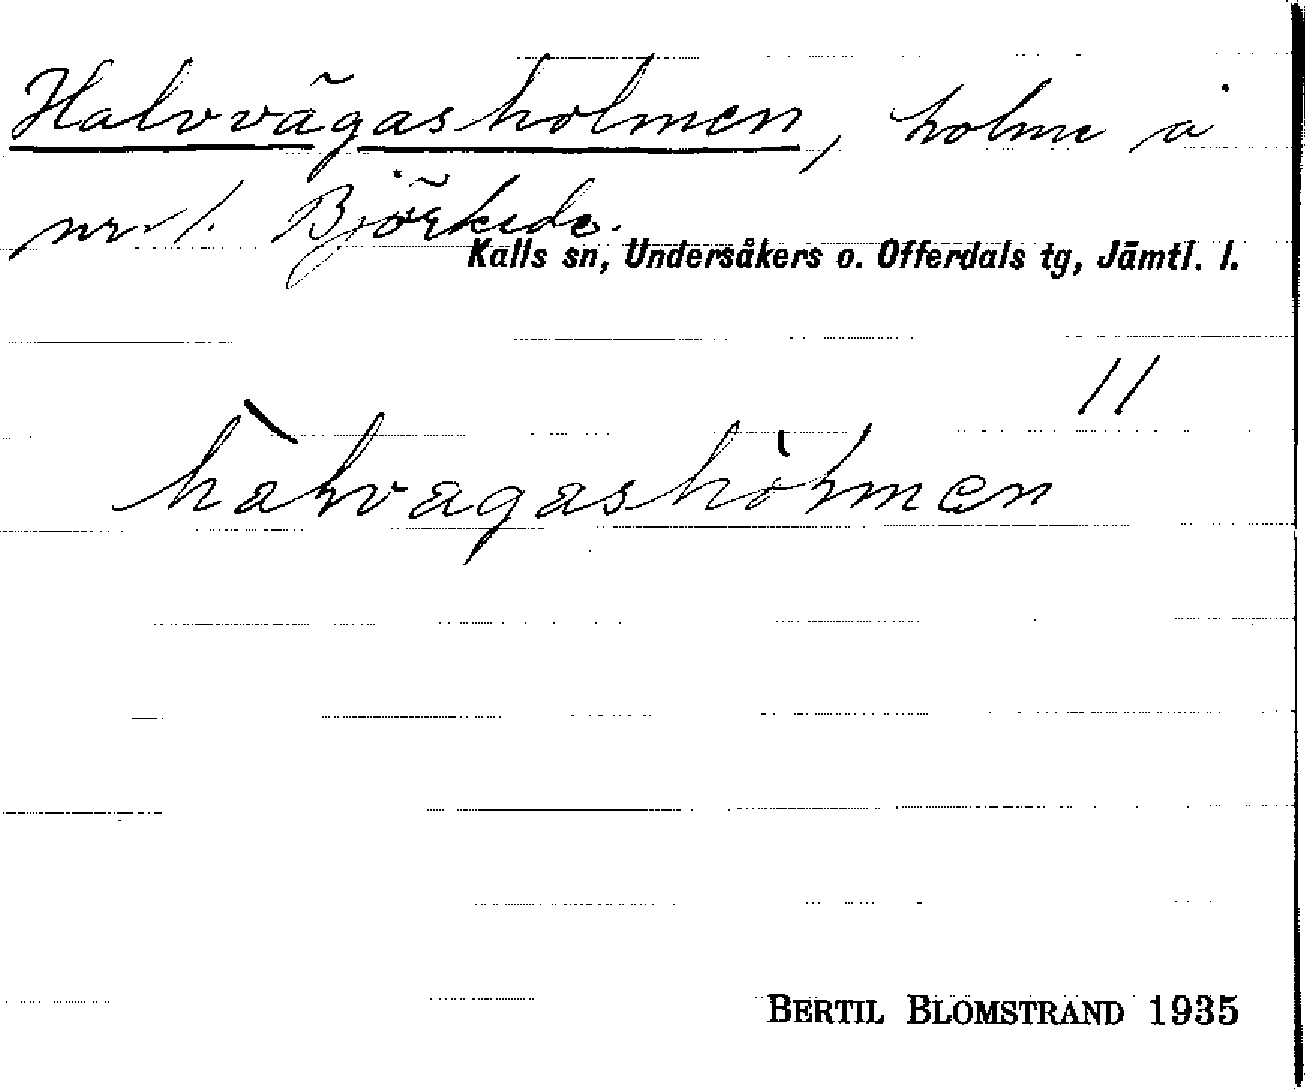 Halvvägasholmen, holme å
nr 1. Björkede.
Kalls sn, Undersåkers o. Offerdals tg, Jämtl. l.
11
BERTIL BLOMSTRAND 1935